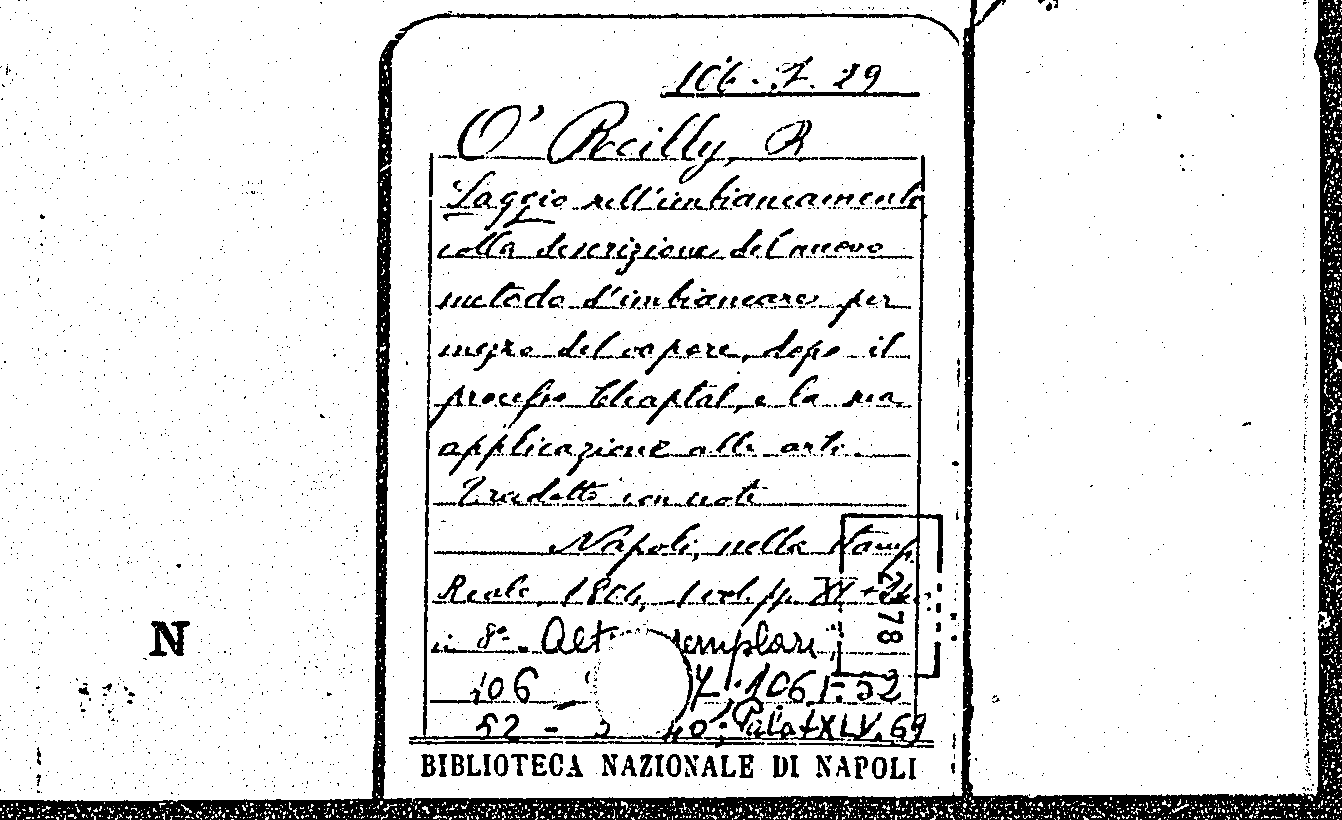 106. 7. 29
O' Reilly, R
Saggio sull'imbiancamento
colla descrizione del nuovo
metodo d'imbiancare per
mezzo del vapore, dopo il
processo Chaptal, e la sua
applicazione alle arti.
Tradotto con note
Napoli, nella Stamp.
Reale, 1806, 1 vol. pp. XI +
in 8º. Alt emplari:
106 106 F. 52
52 - 40; Palat XLV. 69
78
N
BIBLIOTECA NAZIONALE DI NAPOLI